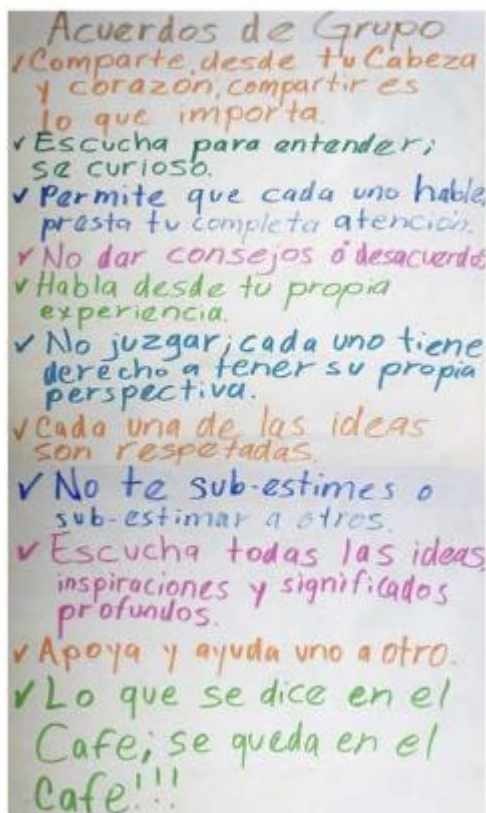 Acuerdos de Grupo
✓Comparte, desde tu Cabeza
y corazón, compartir es
lo que importa.
✓Escucha para entender;
se curioso.
✓Permite que cada uno hable,
presta tu completa atención.
✓No dar consejos o desacuerdos
✓Habla desde tu propia
experiencia.
✓No juzgar; cada uno tiene
derecho a tener su propia
perspectiva.
✓Cada una de las ideas
son respetadas.
✓No te sub-estimes o
sub-estimar a otros.
✓Escucha todas las ideas,
inspiraciones y significados
profundos.
✓Apoya y ayuda uno a otro.
✓Lo que se dice en el
Cafe; se queda en el
Cafe!!!